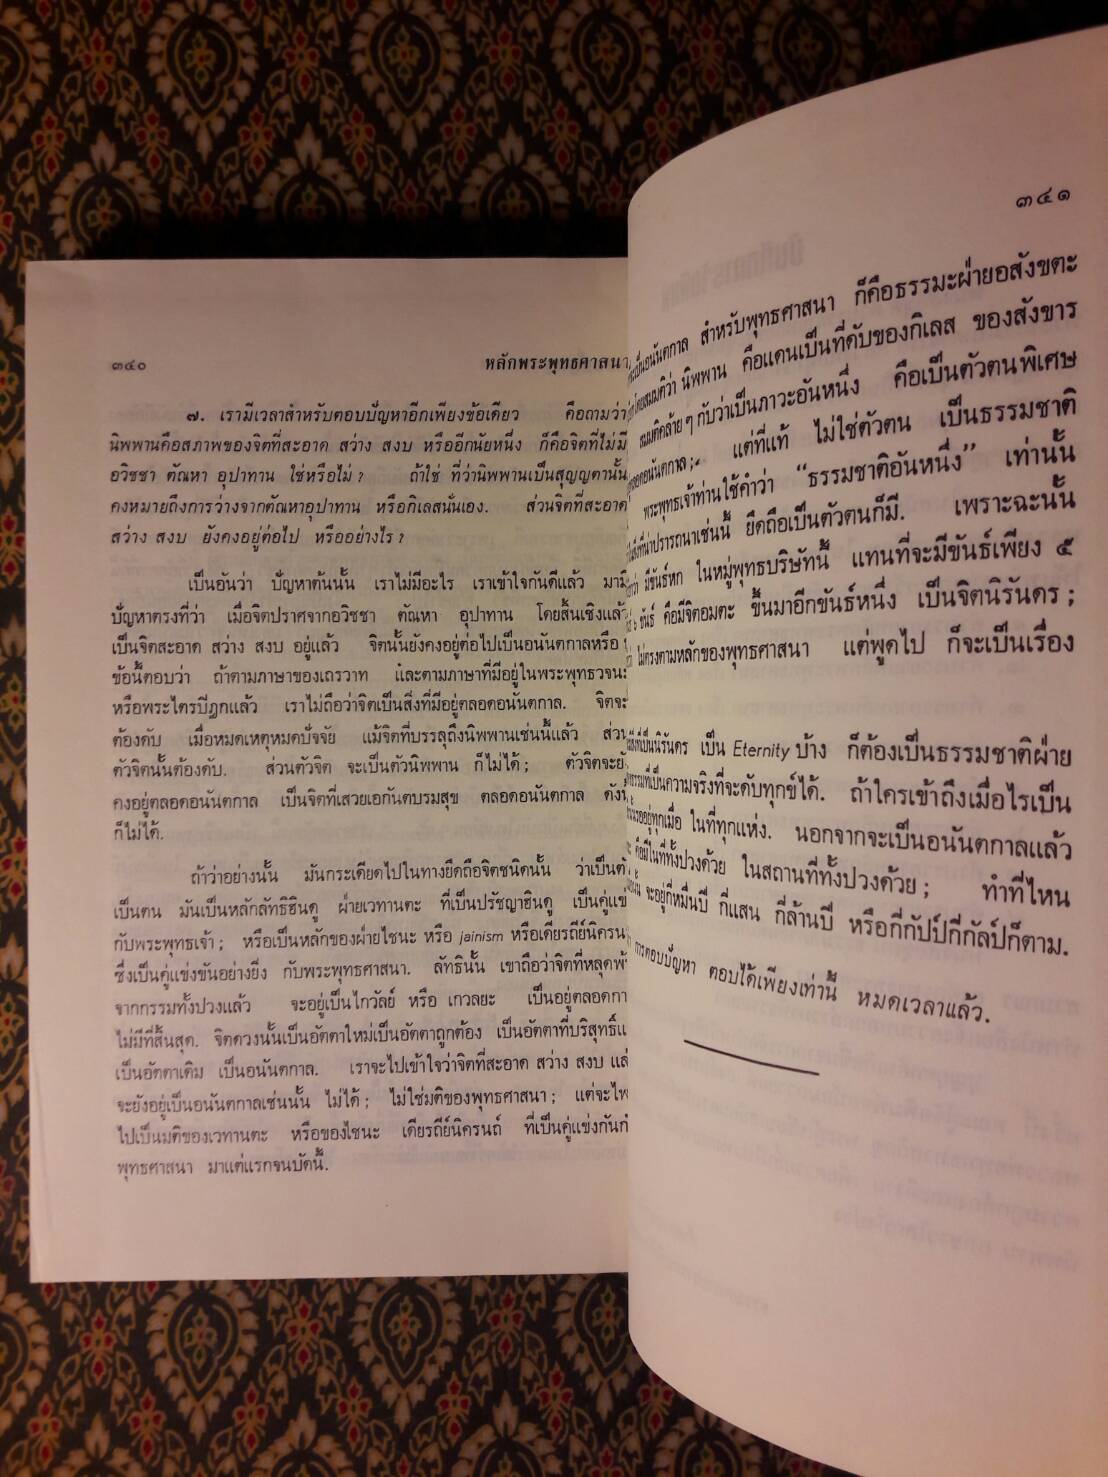 ๓๔๐
หลักพระพุทธศาสนา
๗. เรามีเวลาสำหรับตอบปัญหาอีกเพียงข้อเดียว คือถามว่า
นิพพานคือสภาพของจิตที่สะอาด สว่าง สงบ หรืออีกนัยหนึ่ง ก็คือจิตที่ไม่มี
อวิชชา ตัณหา อุปาทาน ใช่หรือไม่? ถ้าใช่ ที่ว่านิพพานเป็นสุญญตานั้น
คงหมายถึงการว่างจากตัณหาอุปาทาน หรือกิเลสนั่นเอง. ส่วนจิตที่สะอาด
สว่าง สงบ ยังคงอยู่ต่อไป หรืออย่างไร?
เป็นอันว่า ปัญหาต้นนั้น เราไม่มีอะไร เราเข้าใจกันดีแล้ว มามี
ปัญหาตรงที่ว่า เมื่อจิตปราศจากอวิชชา ตัณหา อุปาทาน โดยสิ้นเชิงแล้ว
เป็นจิตสะอาด สว่าง สงบ อยู่แล้ว จิตนั้นยังคงอยู่ต่อไปเป็นอนันตกาลหรือ
ข้อนี้ตอบว่า ถ้าตามภาษาของเถรวาท และตามภาษาที่มีอยู่ในพระพุทธวจนะ
หรือพระไตรปิฎกแล้ว เราไม่ถือว่าจิตเป็นสิ่งที่มีอยู่ตลอดอนันตกาล. จิตจะ
ต้องดับ เมื่อหมดเหตุหมดปัจจัย แม้จิตที่บรรลุถึงนิพพานเช่นนี้แล้ว ส่วน
ตัวจิตนั้นต้องดับ. ส่วนตัวจิต จะเป็นตัวนิพพาน ก็ไม่ได้; ตัวจิตจะยัง
คงอยู่ตลอดอนันตกาล เป็นจิตที่เสวยเอกันตบรมสุข ตลอดอนันตกาล ดังนี้
ก็ไม่ได้.
ถ้าว่าอย่างนั้น มันกระเดียดไปในทางยึดถือจิตชนิดนั้น ว่าเป็นตัว
เป็นตน มันเป็นหลักลัทธิฮินดู ฝ่ายเวทานตะ ที่เป็นปรัชญาฮินดู เป็นคู่แข่ง
กับพระพุทธเจ้า; หรือเป็นหลักของฝ่ายไชนะ หรือ jainism หรือเดียรถีย์นิครนถ์
ซึ่งเป็นคู่แข่งขันอย่างยิ่ง กับพระพุทธศาสนา. ลัทธินั้น เขาถือว่าจิตที่หลุดพ้น
จากกรรมทั้งปวงแล้ว จะอยู่เป็นไกวัลย์ หรือ เกวลยะ เป็นอยู่ตลอดกาล
ไม่มีที่สิ้นสุด. จิตดวงนั้นเป็นอัตตาใหม่เป็นอัตตาถูกต้อง เป็นอัตตาที่บริสุทธิ์
เป็นอัตตาเดิม เป็นอนันตกาล. เราจะไปเข้าใจว่าจิตที่สะอาด สว่าง สงบ แล้ว
จะยังอยู่เป็นอนันตกาลเช่นนั้น ไม่ได้; ไม่ใช่มติของพุทธศาสนา; แต่จะไพล่
ไปเป็นมติของเวทานตะ หรือของไชนะ เดียรถีย์นิครนถ์ ที่เป็นคู่แข่งกันกับ
พุทธศาสนา มาแต่แรกจนบัดนี้.
๓๔๑
เป็นอนันตกาล สำหรับพุทธศาสนา ก็คือธรรมะฝ่ายอสังขตะ
โดยสมมติว่า นิพพาน คือแดนเป็นที่ดับของกิเลส ของสังขาร
สมมติคล้ายๆ กับว่าเป็นภาวะอันหนึ่ง คือเป็นตัวตนพิเศษ
ตลอดอนันตกาล; แต่ที่แท้ ไม่ใช่ตัวตน เป็นธรรมชาติ
พระพุทธเจ้าท่านใช้คำว่า “ธรรมชาติอันหนึ่ง” เท่านั้น
สิ่งที่น่าปรารถนาเช่นนี้ ยึดถือเป็นตัวตนก็มี. เพราะฉะนั้น
ว่า มีขันธ์หก ในหมู่พุทธบริษัทนี้ แทนที่จะมีขันธ์เพียง ๕
๖ ขันธ์ คือมีจิตอมตะ ขึ้นมาอีกขันธ์หนึ่ง เป็นจิตนิรันดร;
ไม่ตรงตามหลักของพุทธศาสนา แต่พูดไป ก็จะเป็นเรื่อง
สิ่งที่เป็นนิรันดร เป็น Eternity บ้าง ก็ต้องเป็นธรรมชาติฝ่าย
ธรรมที่เป็นความจริงที่จะดับทุกข์ได้. ถ้าใครเข้าถึงเมื่อไรเป็น
อยู่ทุกเมื่อ ในที่ทุกแห่ง. นอกจากจะเป็นอนันตกาลแล้ว
คือมีในที่ทั้งปวงด้วย ในสถานที่ทั้งปวงด้วย; ทำที่ไหน
จะอยู่กี่หมื่นปี กี่แสน กี่ล้านปี หรือกี่กัปป์กี่กัลป์ก็ตาม.
การตอบปัญหา ตอบได้เพียงเท่านี้ หมดเวลาแล้ว.